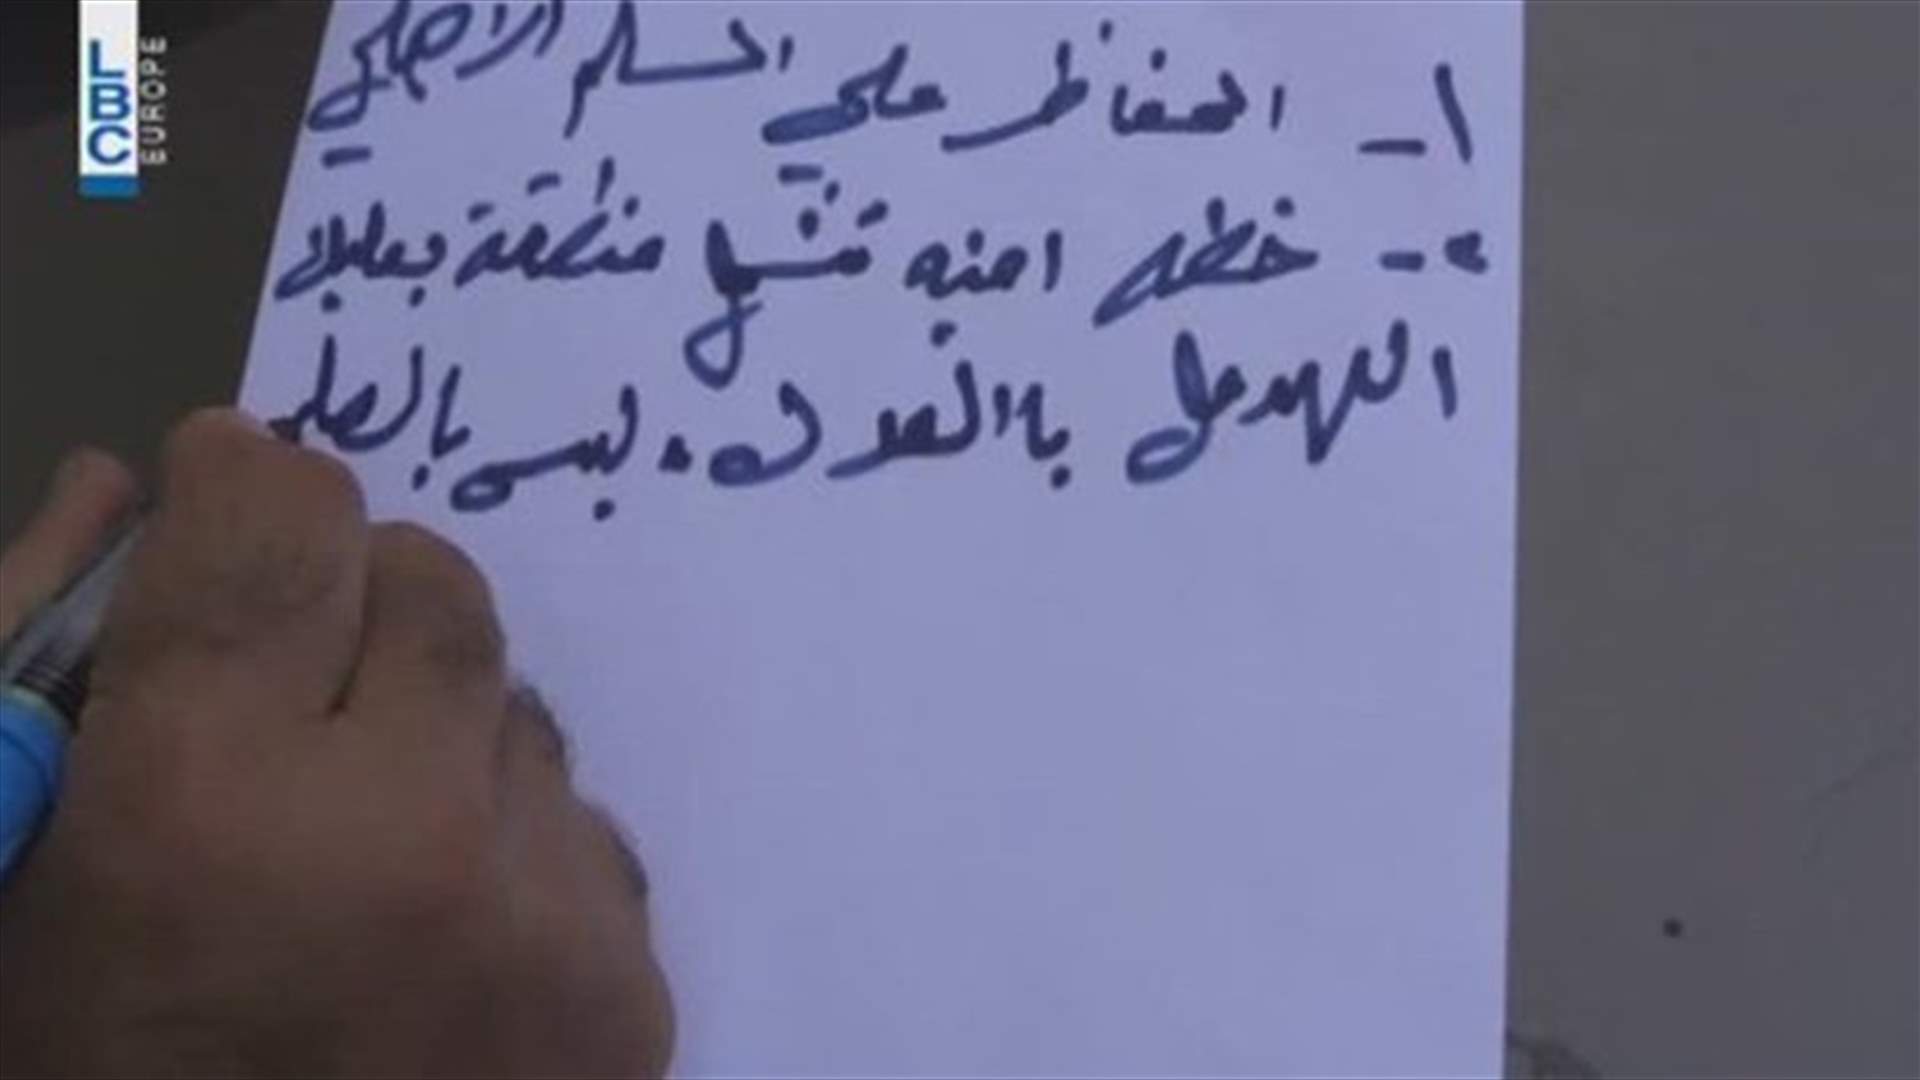 LBC
EUROPE
١- الحفاظ علي السلم الاهلي
٢- خطه امنيه تشمل منطقة بعلبك
الهرمل بالعدل. ليس بالعلم